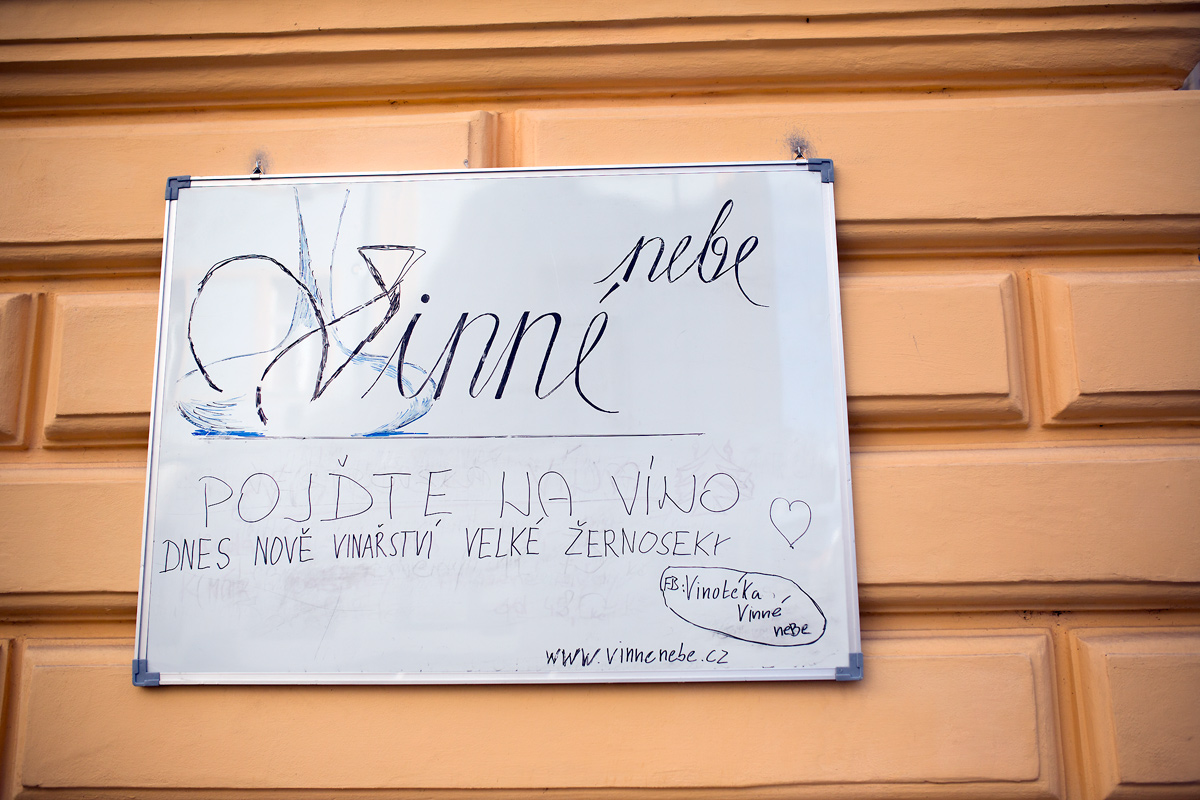 Vinné nebe
POJĎTE NA VÍNO
DNES NOVĚ VINAŘSTVÍ VELKÉ ŽERNOSEKY
FB: Vinotéka
Vinné
neBe
www.vinnenebe.cz